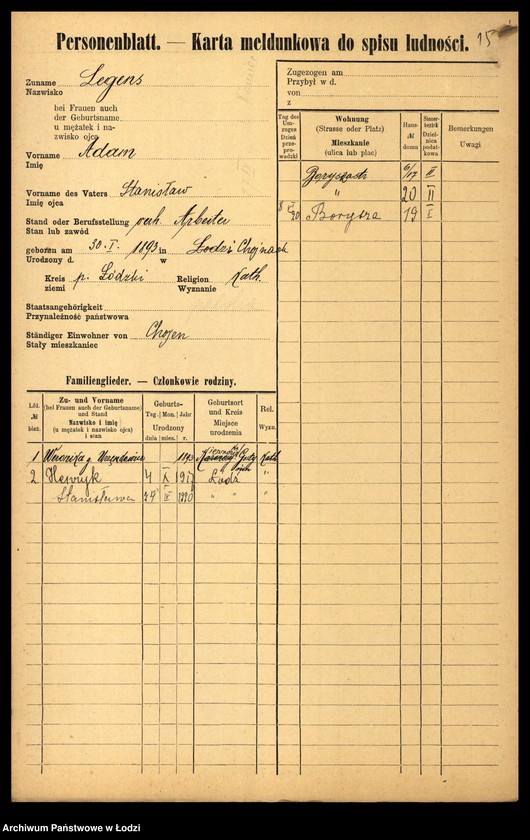 Personenblatt. — Karta meldunkowa do spisu ludności. 15
Zuname Legens
Nazwisko
bei Frauen auch
der Geburtsname
u mężatek i na-
zwisko ojca
Vorname Adam
Imię
Vorname des Vaters Stanisław
Imię ojca
Stand oder Berufsstellung verh. Arbeiter
Stan lub zawód
geboren am 30. I. 1893 in Lodz Chojnach
Urodzony d. w
Kreis p. Łódzki Religion Kath.
ziemi Wyznanie
Staatsangehörigkeit
Przynależność państwowa
Ständiger Einwohner von Chojen
Stały mieszkaniec
Zugezogen am
Przybył w d.
von
z
Tag des Um-zuges Dzień prze-pro-wadzki
Wohnung (Strasse oder Platz) Mieszkanie (ulica lub plac)
Haus-№ domu
Steuer-bezirk Dziel-nica podat-kowa
Bemerkungen Uwagi
6/17
" 20 II
Borysza 19 I
Familienglieder. — Członkowie rodziny.
Lfd. № bież.
Zu- und Vorname (bei Frauen auch der Geburtsname) und Stand Nazwisko i imię (u mężatek i nazwisko ojca) i stan
Geburts- Urodzony
Tag dnia Mon. mies. Jahr r.
Geburtsort und Kreis Miejsce urodzenia
Rel. Wyzn.
1 Weronika g. 1893 Kath
2 Henryk 4 X 1917 Lodz "
Stanisława " " "
Archiwum Państwowe w Łodzi